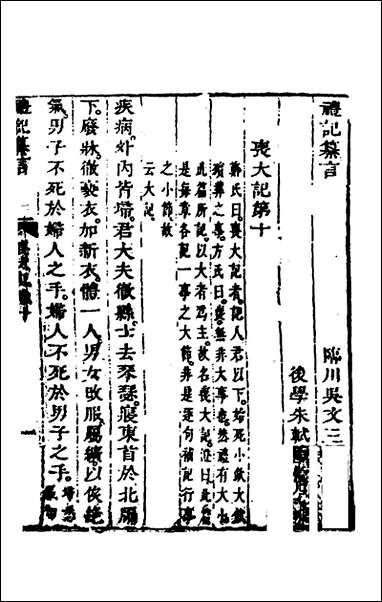 禮記纂言
臨川吳文
後學朱軾
喪大記第十
鄭氏曰喪大記者記人君以下始死小斂大斂
殯葬之事方氏曰喪無非大事也然有大
此篇所記以大者爲主故名喪大記澄曰此
是每章各記一事之大節非是逐句補記行事
之小節故
云大記
疾病外內皆埽君大夫徹縣士去琴瑟寢東首於北牖
下廢牀徹褻衣加新衣體一人男女改服屬纊以俟絕
氣男子不死於婦人之手婦人不死於男子之手
禮記纂言
一